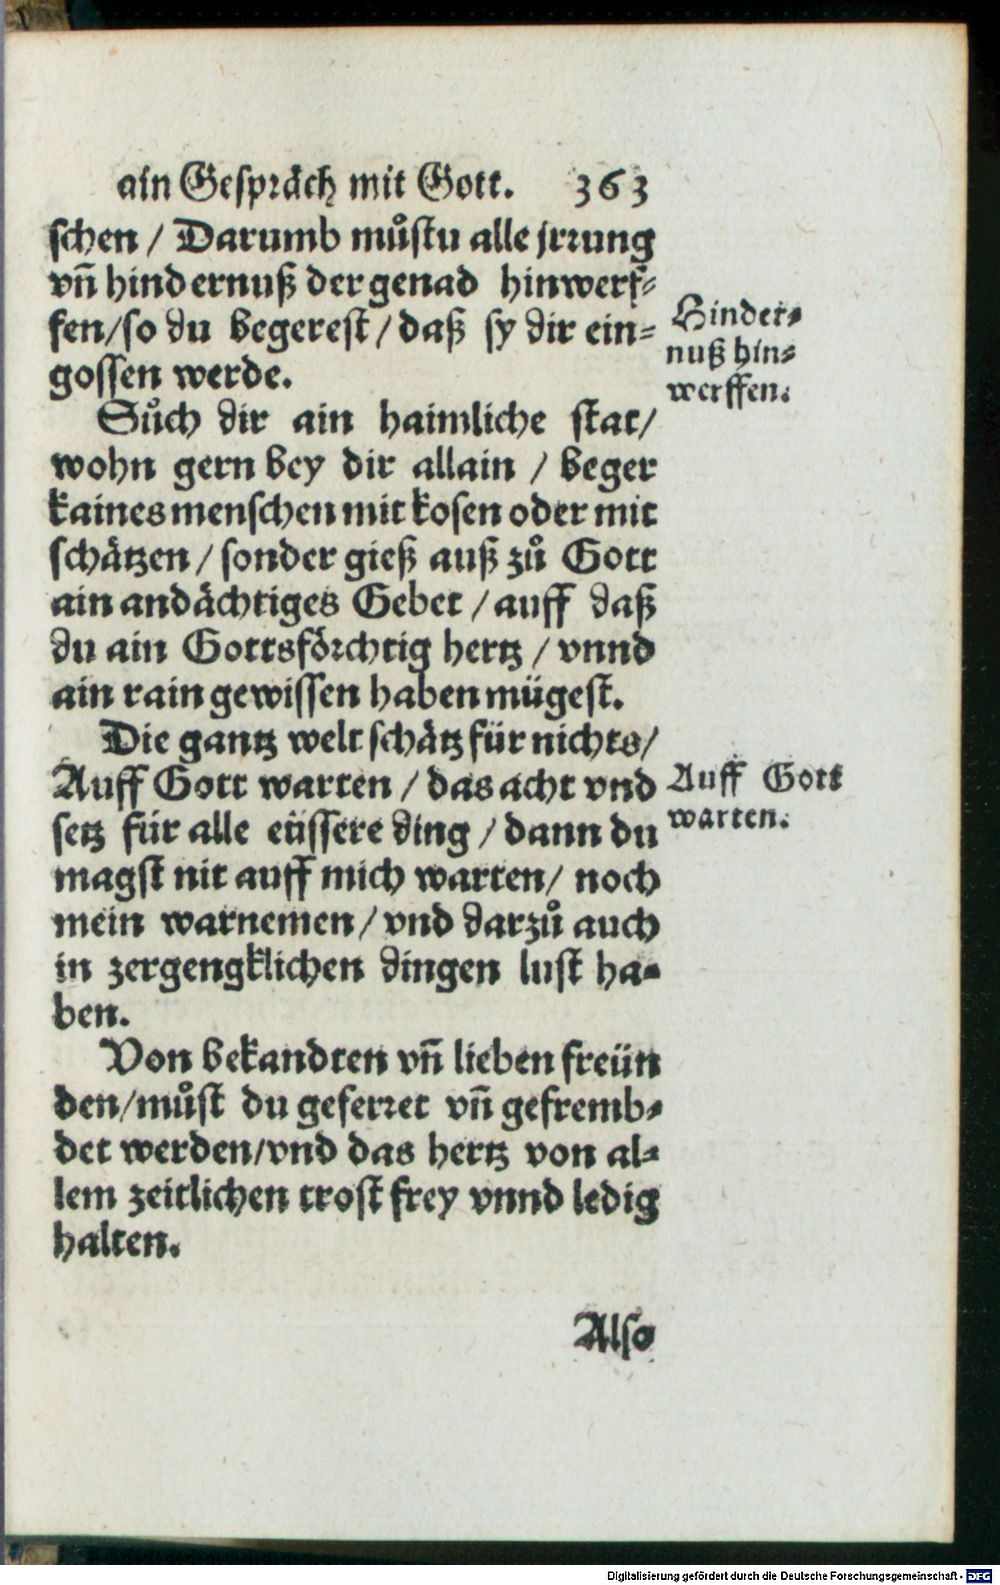 ain Gespräch mit Gott. 363
schen / Darumb můstu alle jrrung
vn̄ hindernuß der genad hinwerf-
fen/so du begerest / daß sy dir ein-
gossen werde.
Hinder-
nuß hin-
werffen.
Sůch dir ain haimliche stat/
wohn gern bey dir allain / beger
kaines menschen mit kosen oder mit
schätzen / sonder gieß auß zů Gott
ain andächtiges Gebet / auff daß
du ain Gottsförchtig hertz / vnnd
ain rain gewissen haben mügest.
Die gantz welt schätz für nichts/
Auff Gott warten / das acht vnd
setz für alle eüssere ding / dann du
magst nit auff mich warten/ noch
mein warnemen / vnd darzů auch
in zergengklichen dingen lust ha-
ben.
Auff Gott
warten.
Von bekandten vn̄ lieben freün
den/můst du geferret vn̄ gefremb-
det werden/vnd das hertz von al-
lem zeitlichen trost frey vnnd ledig
halten.
Also
Digitalisierung gefördert durch die Deutsche Forschungsgemeinschaft - DFG